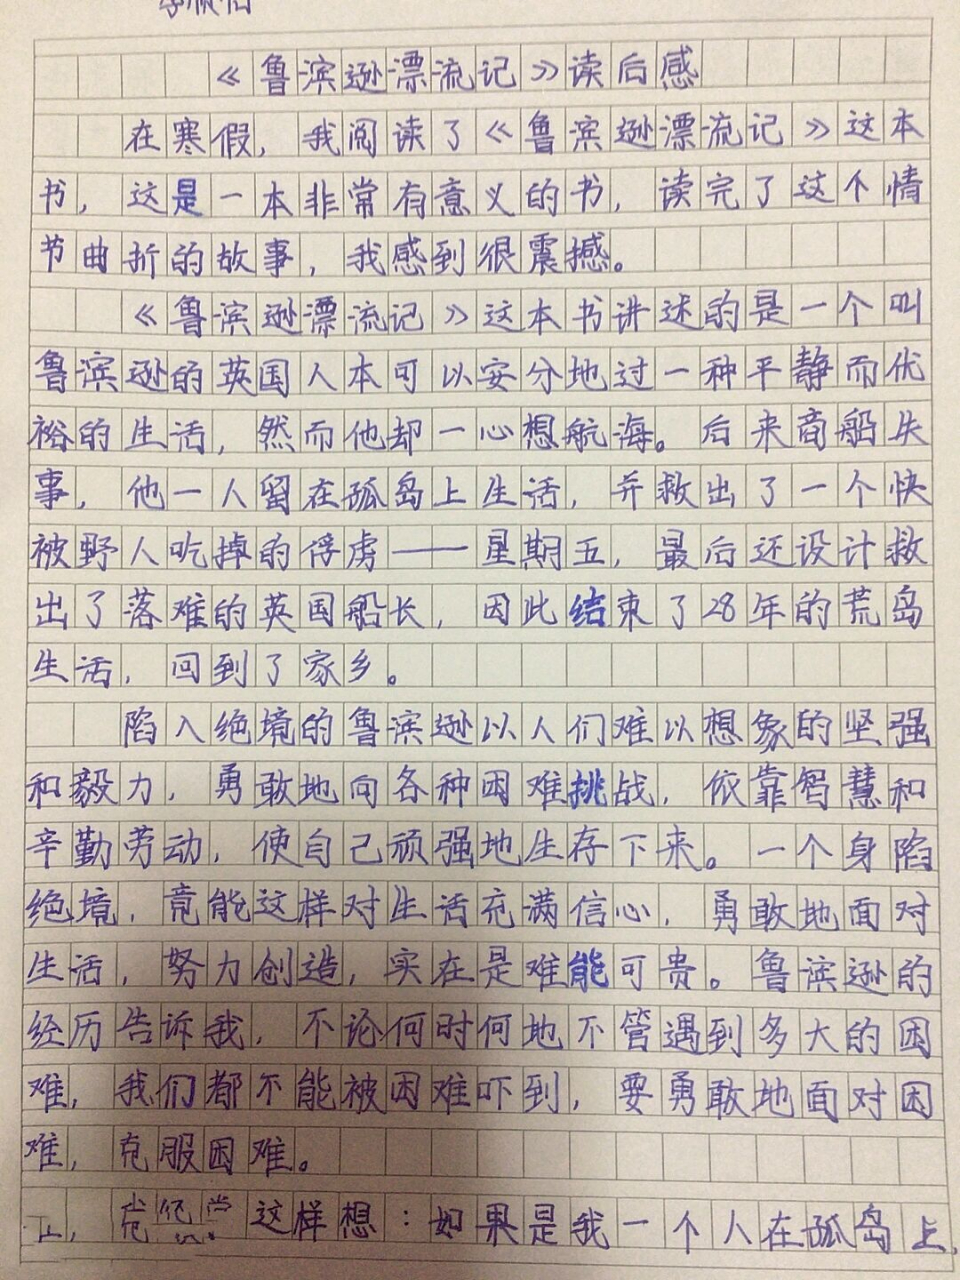 《鲁滨逊漂流记》读后感
在寒假，我阅读了《鲁滨逊漂流记》这本
书，这是一本非常有意义的书，读完了这个情
节曲折的故事，我感到很震撼。
《鲁滨逊漂流记》这本书讲述的是一个叫
鲁滨逊的英国人本可以安分地过一种平静而优
裕的生活，然而他却一心想航海。后来商船失
事，他一人留在孤岛上生活，并救出了一个快
被野人吃掉的俘虏——星期五，最后还设计救
出了落难的英国船长，因此结束了28年的荒岛
生活，回到了家乡。
陷入绝境的鲁滨逊以人们难以想象的坚强
和毅力，勇敢地向各种困难挑战，依靠智慧和
辛勤劳动，使自己顽强地生存下来。一个身陷
绝境，竟能这样对生活充满信心，勇敢地面对
生活，努力创造，实在是难能可贵。鲁滨逊的
经历告诉我，不论何时何地不管遇到多大的困
难，我们都不能被困难吓到，要勇敢地面对困
难，克服困难。
这样想：如果是我一个人在孤岛上，